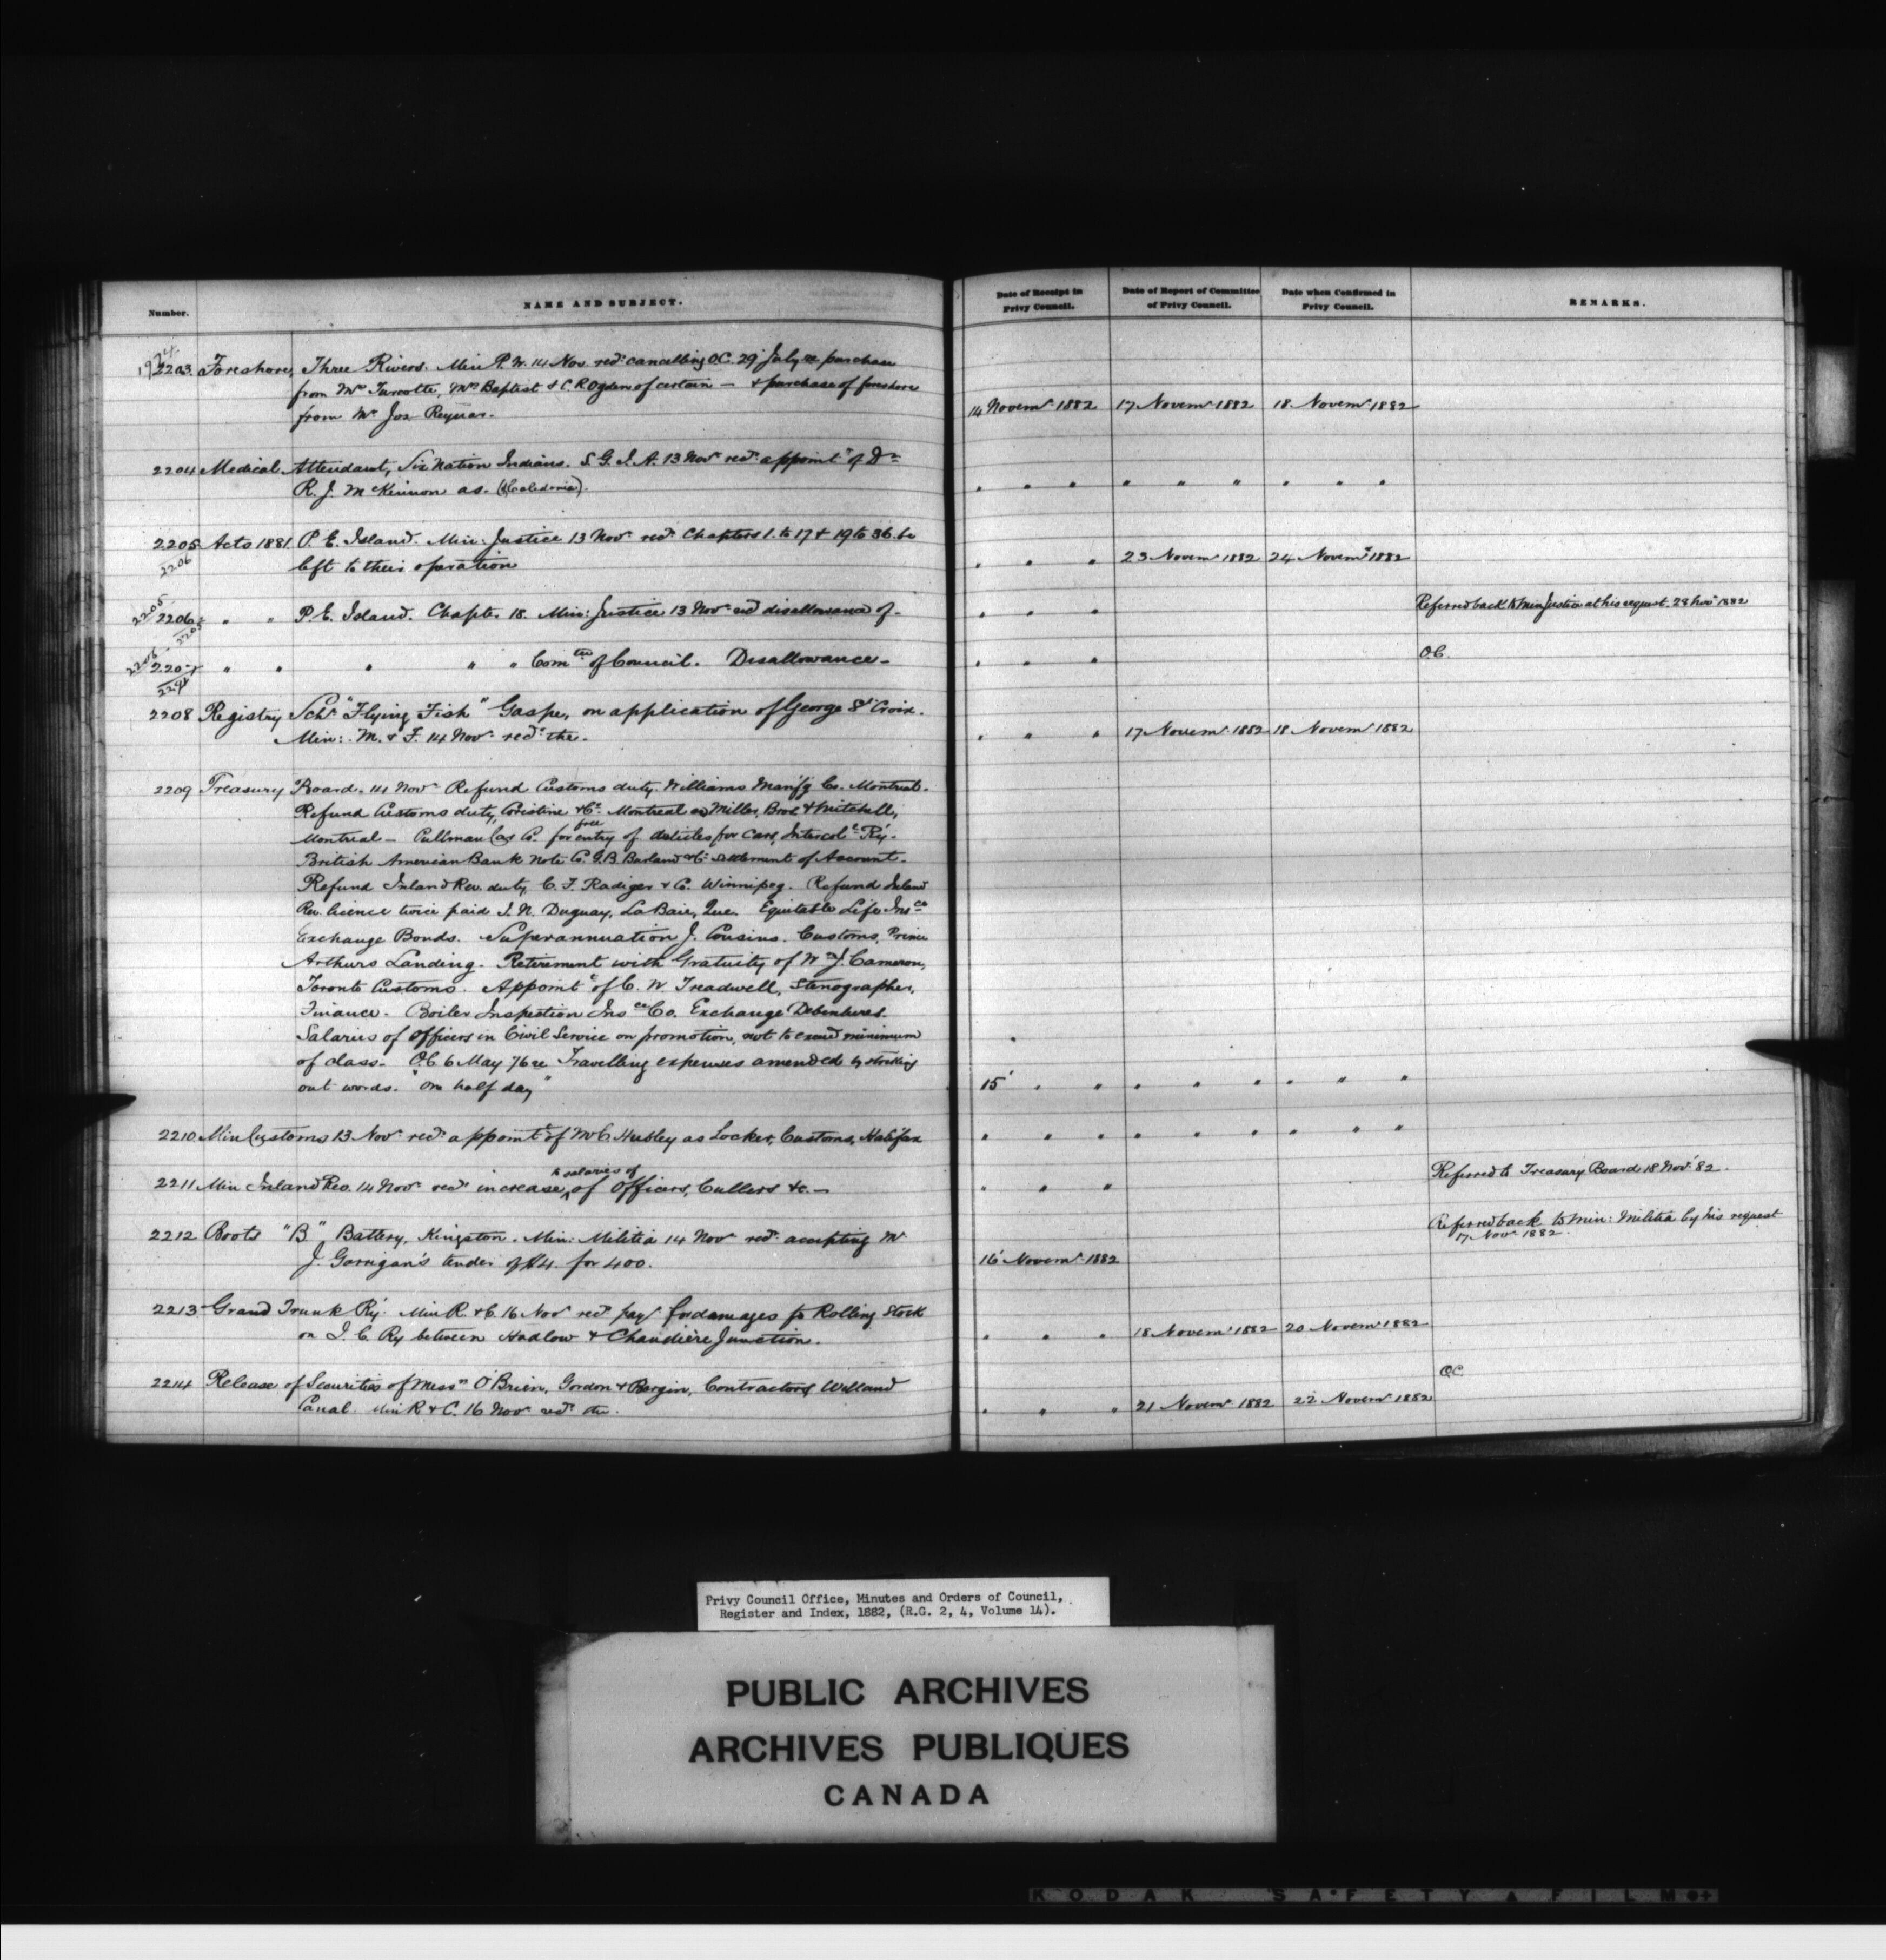 Number.
NAME AND SUBJECT.
Date of Receipt in Privy Council.
Date of Report of Committee of Privy Council.
Date when Confirmed in Privy Council.
REMARKS.
1974
2203 Foreshore, Three Rivers. Min P.W. 14 Nov. recd cancelling OC. 29 July re purchase
from Mrs Turcotte, Mrs Baptist & C.R. Ogden of certain — & purchase of foreshore
from Mr Jos Reynar. 14 Novemr 1882 17 Novemr 1882 18 Novemr 1882
2204 Medical Attendant, Six Nation Indians. S.G.I.A. 13 Novr recd appointt of Dr
R. J. McKinnon as. (Caledonia). " " " " " " " " "
2205 Acts 1881 P.E. Island. Min: Justice 13 Novr recd Chapters 1. to 17 & 19 to 36. be
2206
left to their operation " " " 23 Novemr 1882 24 Novemr 1882
2205
2206 " " P.E. Island. Chapter 18. Min: Justice 13 Novr recd disallowance of - " " " Referred back to Min Justice at his request. 28 Novr 1882
2207 " " " " " Comtee of Council. Disallowance - " " " O.C.
2294
2208 Registry Schr "Flying Fish" Gaspe, on application of George St Croix.
Min: M. & F. 14 Novr recd the. " " " 17 Novemr 1882 18 Novemr 1882
2209 Treasury Board. 14 Novr Refund Customs duty. Williams Manfg Co. Montreal.
Refund Customs duty, Coristine & Co. Montreal and Miller, Bros & Mitchell,
Montreal - Pullman Car Co. for free entry of Articles for Cars, Intercol. Ry.
British American Bank Note Co. G.B. Burland & Co. settlement of Account.
Refund Inland Rev. duty C. F. Radiger & Co. Winnipeg. Refund Inland
Rev. licence twice paid J. N. Duguay, La Baie, Que. Equitable Life Insce
Exchange Bonds. Superannuation J. Cousins. Customs, Prince
Arthurs Landing. Retirement with Gratuity of Wm J. Cameron,
Toronto Customs. Appointt of C. W. Treadwell, Stenographer,
Finance. Boiler Inspection Insce Co. Exchange Debentures.
Salaries of Officers in Civil Service on promotion, not to exceed minimum
of class. O.C. 6 May 76 re Travelling expenses amended by striking
out words. "One half day" 15 " " " " " " " "
2210 Min Customs 13 Novr recd appointt of M C Hubley as Locker, Customs, Halifax " " " " " " " " "
2211 Min Inland Rev. 14 Novr recd increase to salaries of of Officers, Cullers &c. — " " " Referred to Treasury Board 18 Novr 82.
2212 Boots "B" Battery, Kingston. Min: Militia 14 Novr recd accepting Mr
J. Garrigan's tender of $4. for 400. 16 Novemr 1882 Referred back to Min: Militia by his request
17 Novr 1882.
2213 Grand Trunk Ry. Min R. & C. 16 Novr recd payt for damages to Rolling Stock
on I. C. Ry between Hadlow & Chaudière Junction. " " " 18 Novemr 1882 20 Novemr 1882
2214 Release of Securities of Messrs O'Brien, Gordon & Bergin, Contractors Welland O.C.
Canal. Min R & C. 16 Novr recd the. " " " 21 Novemr 1882 22 Novemr 1882
Privy Council Office, Minutes and Orders of Council,
Register and Index, 1882, (R.G. 2, 4, Volume 14).
PUBLIC ARCHIVES
ARCHIVES PUBLIQUES
CANADA
KODAK SAFETY FILM